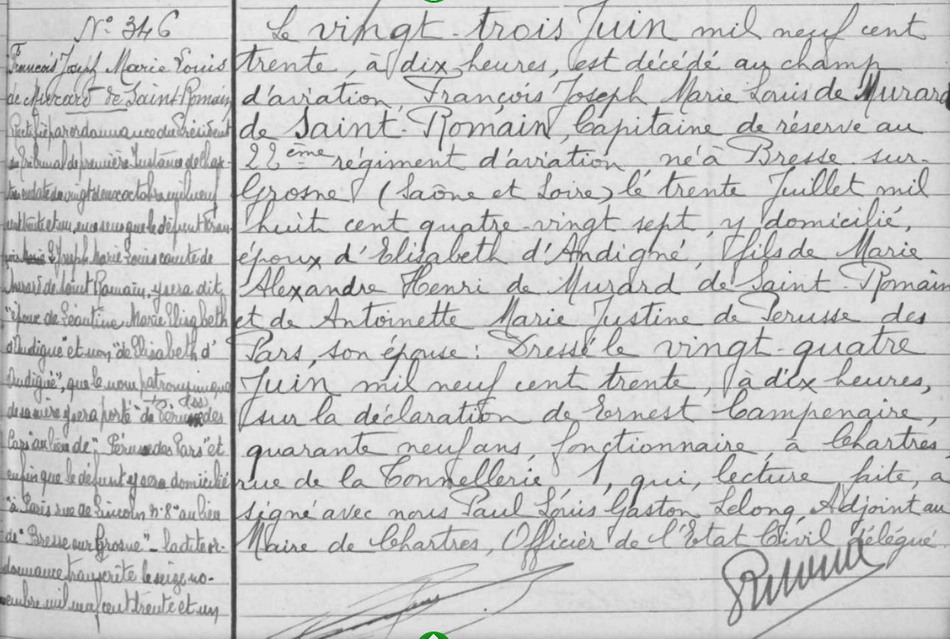 N° 346
François Joseph Marie Louis
de Murard de Saint-Romain
Rectifié par ordonnance du Président
du Tribunal de première Instance de
en date du vingt deux octobre mil neuf
cent trente et un, en ce sens que le défunt Fran-
Joseph Marie Louis comte de
Murard de Saint Romain, y sera dit
"époux de Léontine Marie Elisabeth
d'Andigné" et non "de Elisabeth d'
Andigné", que le nom patronymique
de sa mère y sera porté "de des
Cars" au lieu de "des Pars" et
enfin que le défunt y sera domicilié
"à Paris rue de Lincoln n° 8" au lieu
de "Bresse sur Grosne" - ladite or-
donnance transcrite le seize no-
vembre mil neuf cent trente et un
Le vingt-trois Juin mil neuf cent
trente, à dix heures, est décédé au champ
d'aviation, François Joseph Marie Louis de Murard
de Saint-Romain, Capitaine de réserve au
22ème régiment d'aviation né à Bresse sur-
Grosne (Saône et Loire) le trente Juillet mil
huit cent quatre-vingt sept, y domicilié,
époux d'Elisabeth d'Andigné, fils de Marie
Alexandre Henri de Murard de Saint-Romain
et de Antoinette Marie Justine de Perusse des
Pars, son épouse : Dressé le vingt-quatre
Juin mil neuf cent trente, à dix heures,
sur la déclaration de Ernest Campenaire,
quarante neuf ans, fonctionnaire, à Chartres,
rue de la Tonnellerie 1, qui, lecture faite, a
signé avec nous Paul Louis Gaston Lelong Adjoint au
Maire de Chartres, Officier de l'Etat Civil délégué